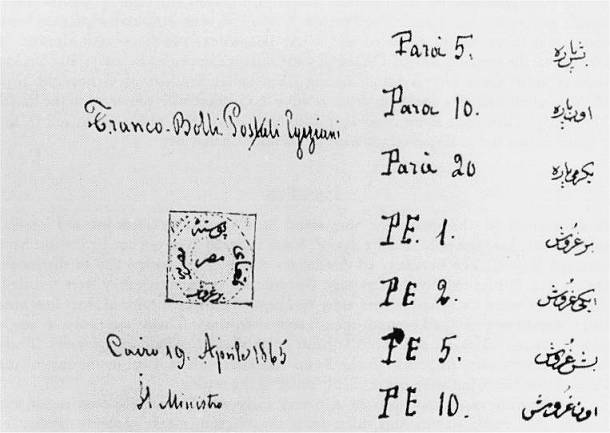 Franco-Bolli Postali Egiziani
پوسته
مصر
بر غروش
Cairo 19. Aprile 1865
Il Ministro
Parà 5. بش پاره
Para 10. اون پاره
Parà 20 يكرمى پاره
PE. 1. بر غروش
PE 2. ايكى غروش
PE 5. بش غروش
PE 10. اون غروش